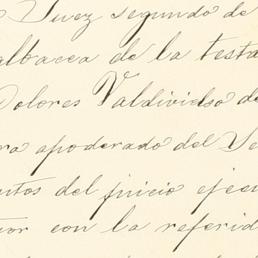 Juez segundo de
albacea de la testa
Dolores Valdivielso de
ra apoderado del Se
ntos del juicio ejecu
tor con la referid